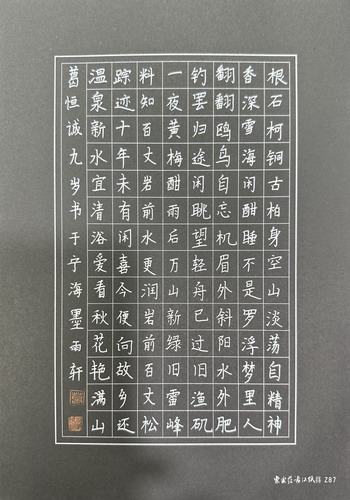 根石柯铜古柏身空山淡荡自精神
香深雪海闲酣睡不是罗浮梦里人
翻翻鸥鸟自忘机眉外斜阳水外肥
钓罢归途闲眺望轻舟已过旧渔矶
一夜黄梅酣雨后万山新绿旧雷峰
料知百丈岩前水更润岩前百丈松
踪迹十年未有闲喜今便向故乡还
温泉新水宜清浴爱看秋花艳满山
葛恒诚九岁书于宁海墨雨轩
287